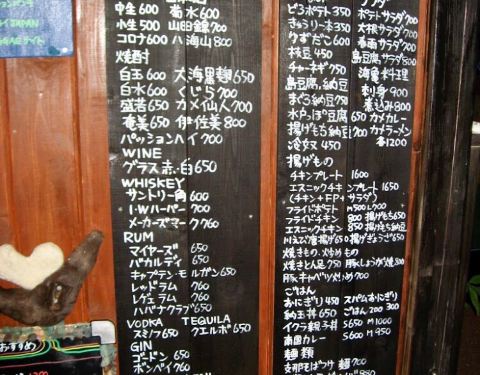 中生 600 菊水 600
小生 500 山田錦 700
コロナ 600 八海山 800
焼酎
白玉 600 大海黒麹 650
白水 600 くじら 700
盛若 650 カメ仙人 700
奄美 650 伊佐美 800
パッションハイ 700
WINE
グラス赤・白 650
WHISKEY
サントリー角 600
I・Wハーパー 700
メーカーズマーク 760
RUM
マイヤーズ 650
バカルディ 650
キャプテン・モルガン 650
レッドラム 760
レゲェラム 760
ハバナクラブ 650
VODKA TEQUILA
スミノフ 650 クエルボ 650
GIN
ゴードン 650
ボンベイ 760
ピリ3ポテト 350 ポテトサラダ 700
きゅうり一本 350 大根サラダ 700
くずだこ 600 春雨サラダ 700
枝豆 450 島豆腐サラダ 500
チャーネギ 750 海亀料理
島豆腐、納豆 刺身 900
まぐろ納豆 750 煮込み 800
水戸っぽ豆腐 650 カメカレー
揚げもち納豆 700 カメラーメン
冷奴 450 各1200
揚げもの
チキンプレート 1600
エスニックチキンプレート 1650
(チキン+FP+サラダ)
フライドポテト M500 L700
フライドチキン 800 揚げもち 650
エスニックチキン 850 揚げもち納豆
川えび唐揚げ 650 揚げぎょうざ 650
焼きもの、炒めもの
焼きとん足 750 豚しょうが焼 800
豚キャベツ炒め 700
ごはん
おにぎり 450 スパムおにぎり
納玉丼 650 ごはん 200 300
イクラ親子丼 S650 M1000
南国カレー S600 M900
麺類
支那そばつけ麺 700
おすすめ